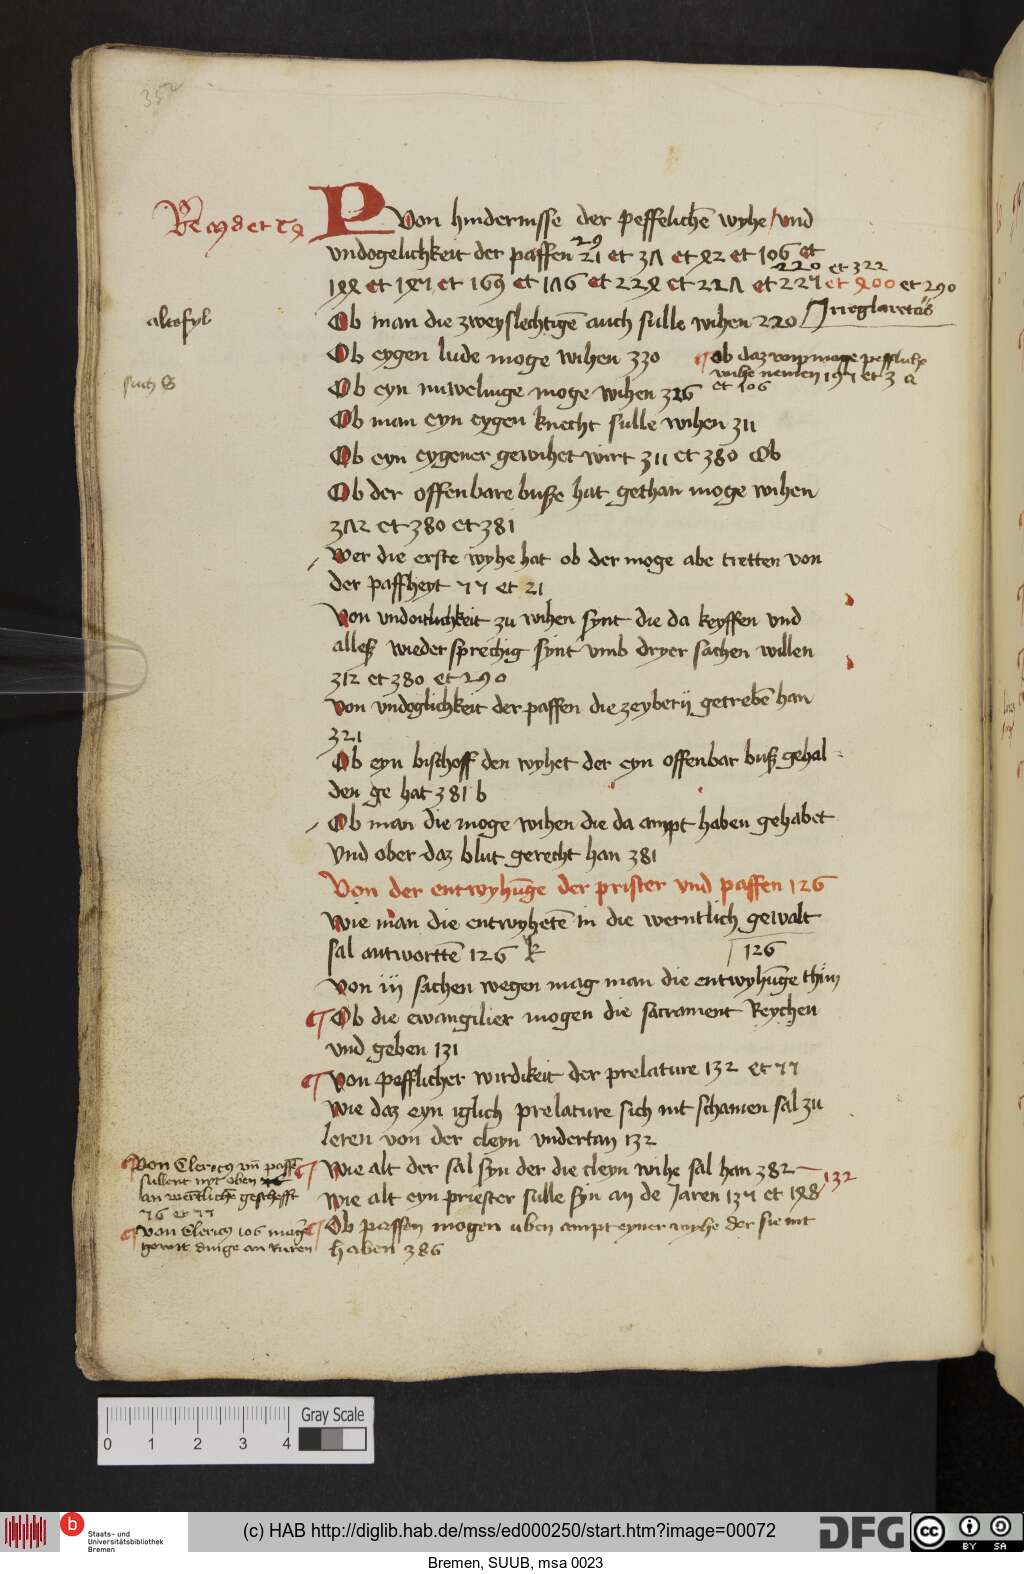 352
P Von hindernisse der peffelichē wyhe / vnd
vndogelichkeit der paffen 21 et 3Λ et ȣ2 et 106 et
29
et 169 et 1Λ6 et
220 et 322
et 290
altefyl
Ob man die zweyslechtigē auch sulle wihen 220
Irreglaretas
Ob eygen lude moge wihen 330
such S
Ob eyn nuwelinge moge wihen 326
et 106
Ob man eyn eygen knecht sulle wihen 311
Ob eyn eygener gewihet wirt 311 et 380 Ob
Ob der offenbare busze hat gethan moge wihen
3Λ2 et 380 et 381
Wer die erste wyhe hat ob der moge abe tretten von
der paffheyt 77 et 21
Von vndoitlichkeit zu wihen synt die da keyffen vnd
allesz wieder sprechig synt vmb dryer sachen willen
312 et 380 et 290
Von vndoglichkeit der paffen die zeyberij getrebē han
321
Ob eyn bischoff den wyhet der eyn offenbar busz gehal
den ge hat 381 b
Ob man die moge wihen die da ampt haben gehabet
Vnd ober daz blut gerecht han 381
Von der entwyhūge der prister vnd paffen 126
Wie man die entwyhetē in die werntlich gewalt
sal antworttē 126 k
126
Von iij sachen wegen mag man die entwyhūge thun
Ob die ewangilier mogen die sacrament Reychen
vnd geben 131
Von pefflicher wirdikeit der prelature 132 et 77
Wie daz eyn iglich prelature sich nit schamen sal zu
leren von der cleyn vndertan 132
Von Clericꝯ vn̄ paffē
sullent nyt oben
an werltlichē geschefft
76 et 77
Wie alt der sal syn der die cleyn wihe sal han 382
132
Wie alt eyn priester sulle syn an de Jaren 137 et
Von Clericꝯ 106
dinge an Ruren
Ob paffen mogen uben ampt eyner wyhe der sie nit
haben 386
0 1 2 3 4
Gray Scale
b
Staats- und
Universitätsbibliothek
Bremen
(c) HAB http://diglib.hab.de/mss/ed000250/start.htm?image=00072
DFG
cc
BY SA
Bremen, SUUB, msa 0023